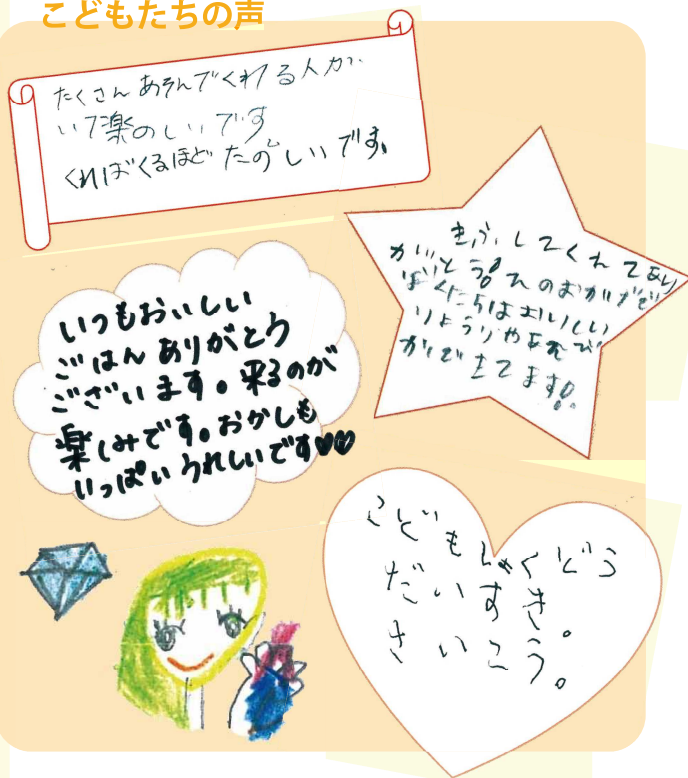 こどもたちの声
たくさんあそんでくれる人が、
いて楽のしいです
くればくるほどたのしいです。
きふしてくれてあり
がとう!そのおかげで
ぼくたちはおいしい
りょうりやあそび
ができてます!!
いつもおいしい
ごはんありがとう
ございます。来るのが
楽しみです。おかしも
いっぱいうれしいです♡♡
こどもしょくどう
だいすき。
さいこう。